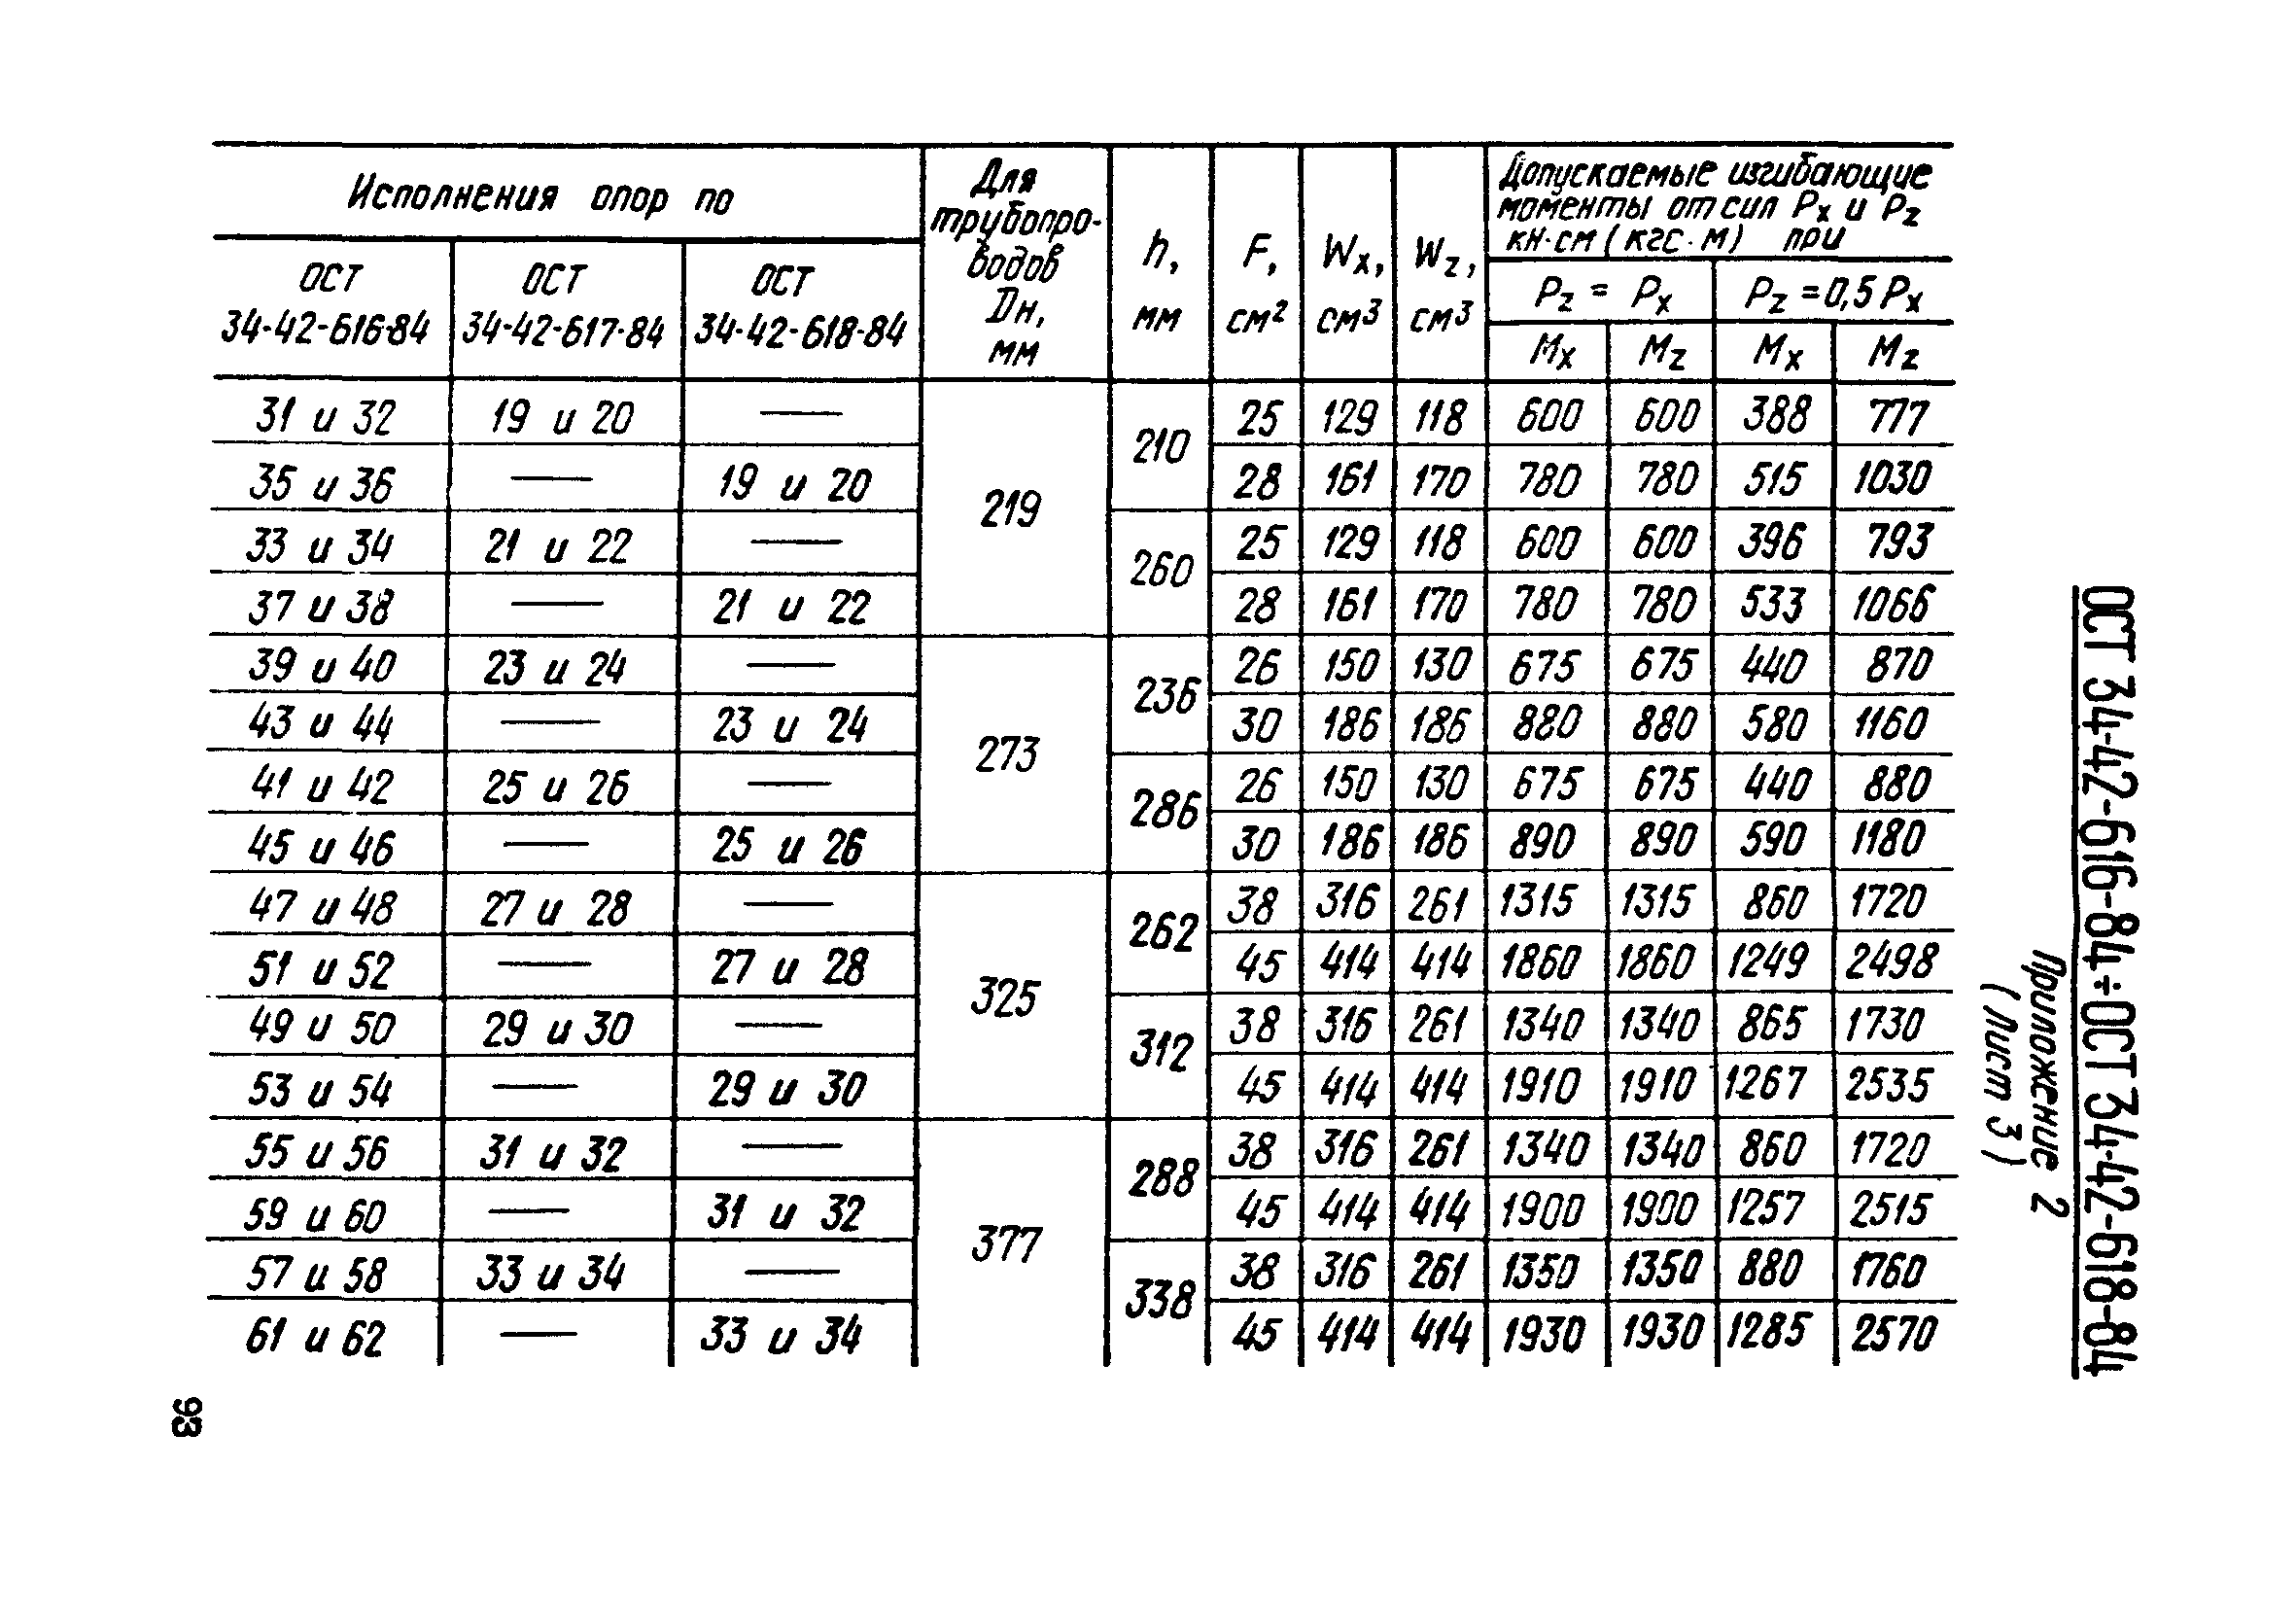 Исполнения опор по
ОСТ 34-42-616-84
ОСТ 34-42-617-84
ОСТ 34-42-618-84
Для трубопро-
водов
Dн,
мм
h,
мм
F,
см²
Wx,
см³
Wz,
см³
Допускаемые изгибающие
моменты от сил Px и Pz
кн·см (кгс·м) при
Pz = Px
Pz = 0,5 Px
Mx Mz Mx Mz
31 и 32 19 и 20 — 219 210 25 129 118 600 600 388 777
35 и 36 — 19 и 20 28 161 170 780 780 515 1030
33 и 34 21 и 22 — 260 25 129 118 600 600 396 793
37 и 38 — 21 и 22 28 161 170 780 780 533 1066
39 и 40 23 и 24 — 273 236 26 150 130 675 675 440 870
43 и 44 — 23 и 24 30 186 186 880 880 580 1160
41 и 42 25 и 26 — 286 26 150 130 675 675 440 880
45 и 46 — 25 и 26 30 186 186 890 890 590 1180
47 и 48 27 и 28 — 325 262 38 316 261 1315 1315 860 1720
51 и 52 — 27 и 28 45 414 414 1860 1860 1249 2498
49 и 50 29 и 30 — 312 38 316 261 1340 1340 865 1730
53 и 54 — 29 и 30 45 414 414 1910 1910 1267 2535
55 и 56 31 и 32 — 377 288 38 316 261 1340 1340 860 1720
59 и 60 — 31 и 32 45 414 414 1900 1900 1257 2515
57 и 58 33 и 34 — 338 38 316 261 1350 1350 880 1760
61 и 62 — 33 и 34 45 414 414 1930 1930 1285 2570
ОСТ 34-42-616-84÷ОСТ 34-42-618-84
Приложение 2
(Лист 3)
93